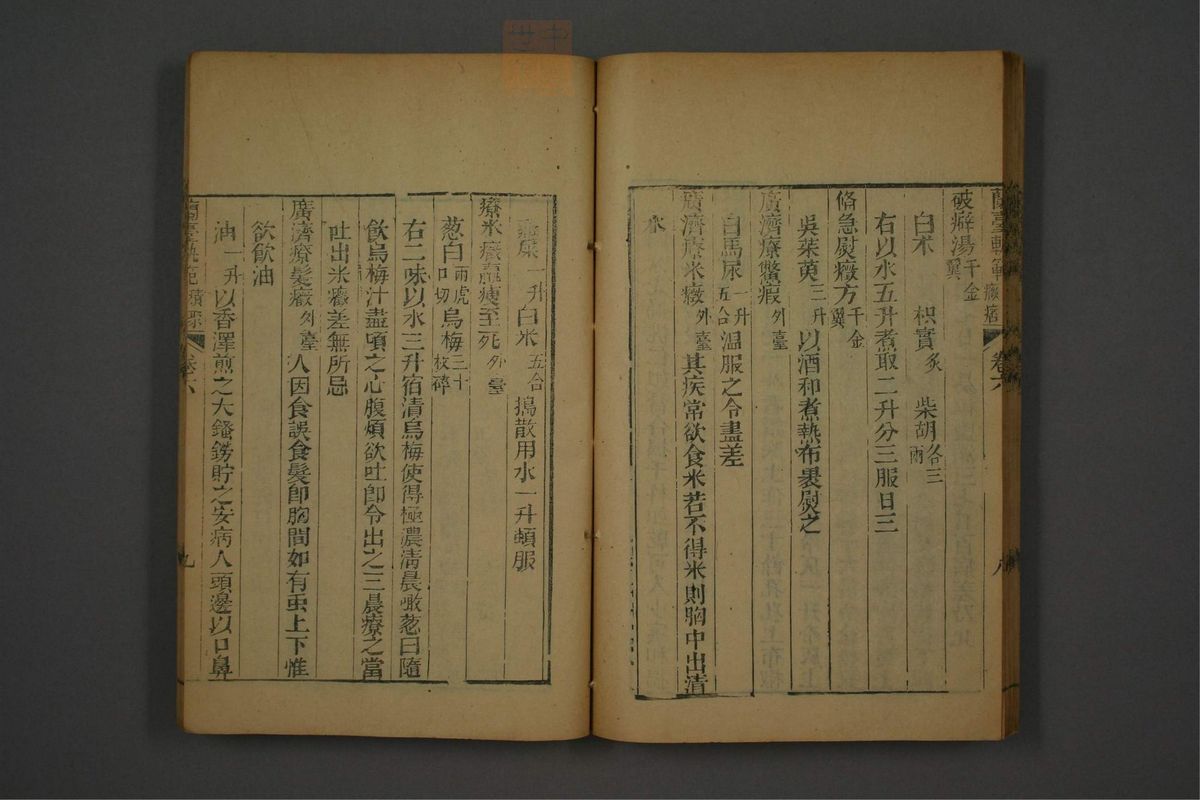 蘭臺軌範 癥瘕 卷六 八
破癖湯 千金翼
白朮 枳實炙 柴胡各三兩
右以水五升煮取二升分三服日三
備急熨癥方 千金翼
吳茱萸三升 以酒和煮熱布裹熨之
廣濟療鱉瘕 外臺
白馬尿一升五合 溫服之令盡差
廣濟療米癥 外臺 其疾常欲食米若不得米則胸中出清
水
一升白米五合 搗散用水一升頓服
療米癥羸瘦至死 外臺
葱白兩虎口切 烏梅三十枚碎
右二味以水三升宿漬烏梅使得極濃清晨噉葱白隨
飲烏梅汁盡頃之心腹煩欲吐即令出之三晨療之當
吐出米癥差無所忌
廣濟療髮癥 外臺 人因食誤食髮即胸間如有虫上下惟
欲飲油
油一升 以香澤煎之大鏂鐒貯之安病人頭邊以口鼻
蘭臺軌範 卷六 九